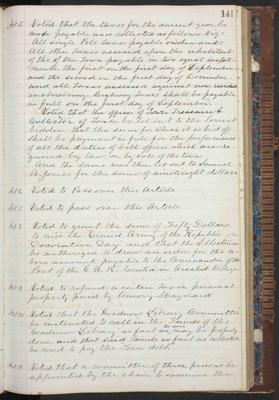 141
Art 5. Voted that the taxes for the current year be
made payable and collected as follows viz:
All single Poll Taxes payable on demand.
All other Taxes assessed upon the inhabitants
of the Town payable in two equal installments
the first on the first day of September
and the second on the first day of December
and all Taxes assessed against non resident
payable
in full on the first day of September.
Voted that the office of Town Treasurer &
Collector of Taxes be let out to the lowest
bidder that the sum for which it is bid off
shall be payment in full for the performance
of all the duties of both offices which are required
by law or by vote of the town
And the same was then let out to Samuel
A. Jones for the sum of ninety eight dollars
Art 6 Voted to Pass over this Article
Art 7 Voted to pass over this Article
Art 8 Voted to grant the sum of Fifty Dollars
to aid the Grand Army of the Republic on
Decoration Day and that the Selectmen
be authorized to draw an order for the above
amount payable to the Commander of the
Post of the G. A. R. located in Assabet Village
Art 9 Voted to refund a certain tax on personal
property paid by Amory Maynard
Art 10 Voted that the Goodnow Library Committee
be instructed to call in the Funds of the
Goodnow Library as fast as may be properly
done and that said funds as fast as collected
be used to pay the Town debt
Art 11 Voted that a committee of three persons be
appointed by the chair to examine the